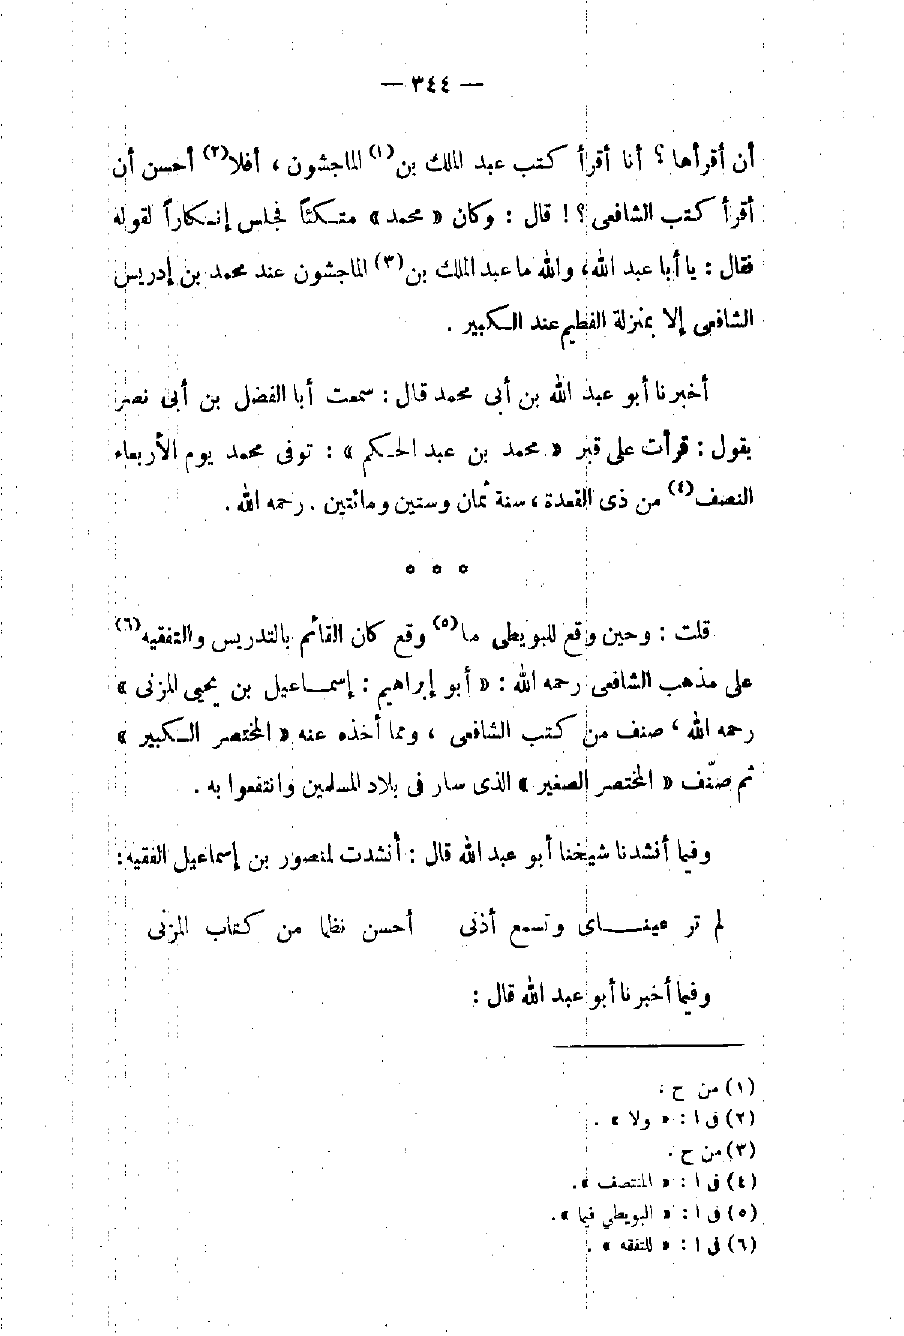 — ٣٤٤ —
أن أقرأها ؟ أنا أقرأ كتب عبد الملك بن(١) الماجشون ، أفلا(٢) أحسن أن
أقرأ كتب الشافعى ؟! قال : وكان « محمد » متكئاً فجلس إنكاراً لقوله
فقال : يا أبا عبد الله، والله ما عبد الملك بن(٣) الماجشون عند محمد بن إدريس
الشافعى إلا بمنزلة الفطيم عند الكبير .
أخبرنا أبو عبد الله بن أبى محمد قال : سمعت أبا الفضل بن أبى نصر
يقول : قرأت على قبر « محمد بن عبد الحكم » : توفى محمد يوم الأربعاء
النصف(٤) من ذى القعدة ، سنة ثمان وستين ومائتين . رحمه الله .
* * *
قلت : وحين وقع للبويطى ما(٥) وقع كان القائم بالتدريس والتفقيه(٦)
على مذهب الشافعى رحمه الله : « أبو إبراهيم : إسماعيل بن يحيى المزنى »
رحمه الله ، صنف من كتب الشافعى ، ومما أخذه عنه « المختصر الكبير »
ثم صنّف « المختصر الصغير » الذى سار فى بلاد المسلمين وانتفعوا به .
وفيما أنشدنا شيخنا أبو عبد الله قال : أنشدت لمنصور بن إسماعيل الفقيه :
لم تر عينـــاى وتسمع أذنى أحسن نظما من كتاب المزنى
وفيما أخبرنا أبو عبد الله قال :
(١) من ح .
(٢) فى ا : « ولا » .
(٣) من ح .
(٤) فى ا : « المنتصف ».
(٥) فى ا : « البويطي فيما ».
(٦) فى ا : « للتفقه » .